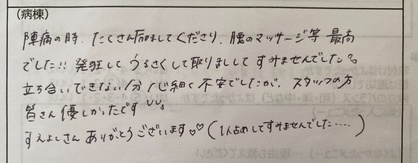 (病棟)
陣痛の時、たくさん励ましてくださり、腰のマッサージ等 最高
でした!! 発狂して うるさくして取りましてして すみませんでした?。
立ち会いできない分 心細く 不安でしたが、スタッフの方
皆さん優しかったです
すえよしさん ありがとうございます♡♡(1人占めしてすみませんでした……)